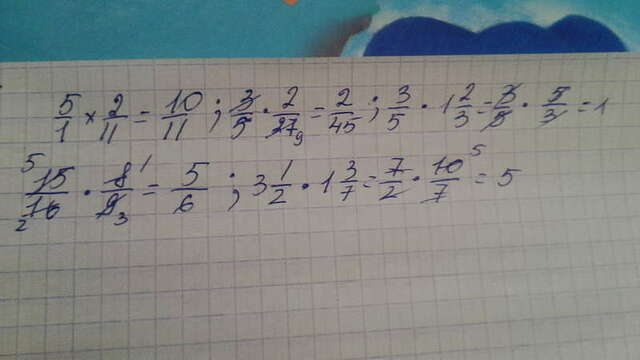 5/1 × 2/11 = 10/11 ; 3/5 · 2/27 9 = 2/45 ; 3/5 · 1 2/3 = 3/5 · 5/3 = 1
5 15/16 2 · 8 1/9 3 = 5/6 ; 3 1/2 · 1 3/7 = 7/2 · 10 5/7 = 5